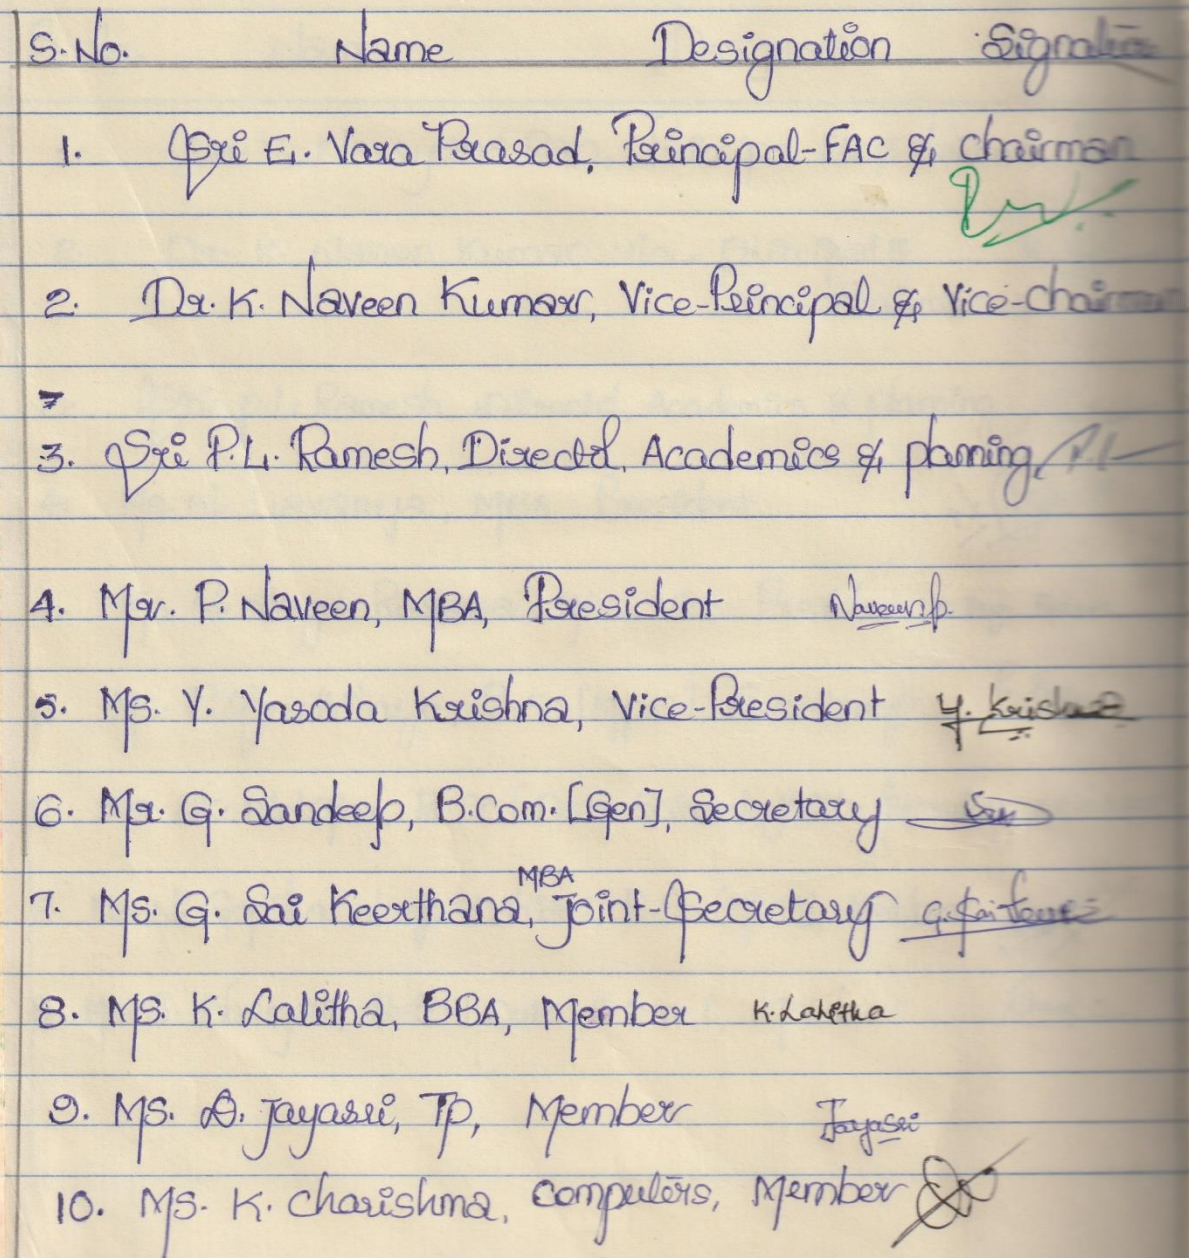 S.No. Name Designation Signature
1. Sri E. Vara Prasad, Principal-FAC & chairman
2. Dr. K. Naveen Kumar, Vice-Principal & Vice-chairman
3. Sri P.L. Ramesh, Director, Academics & planning
4. Mr. P. Naveen, MBA, President Naveen.p.
5. Ms. Y. Yasoda Krishna, Vice-President Y. Krishna
6. Mr. G. Sandeep, B.Com. [Gen], Secretary
MBA
7. Ms. G. Sai Keerthana, Joint-Secretary G. Sai
8. Ms. K. Lalitha, BBA, Member K. Lalitha
9. Ms. D. Jayasri, TP, Member Jayasri
10. Ms. K. Charishma, Computers, Member